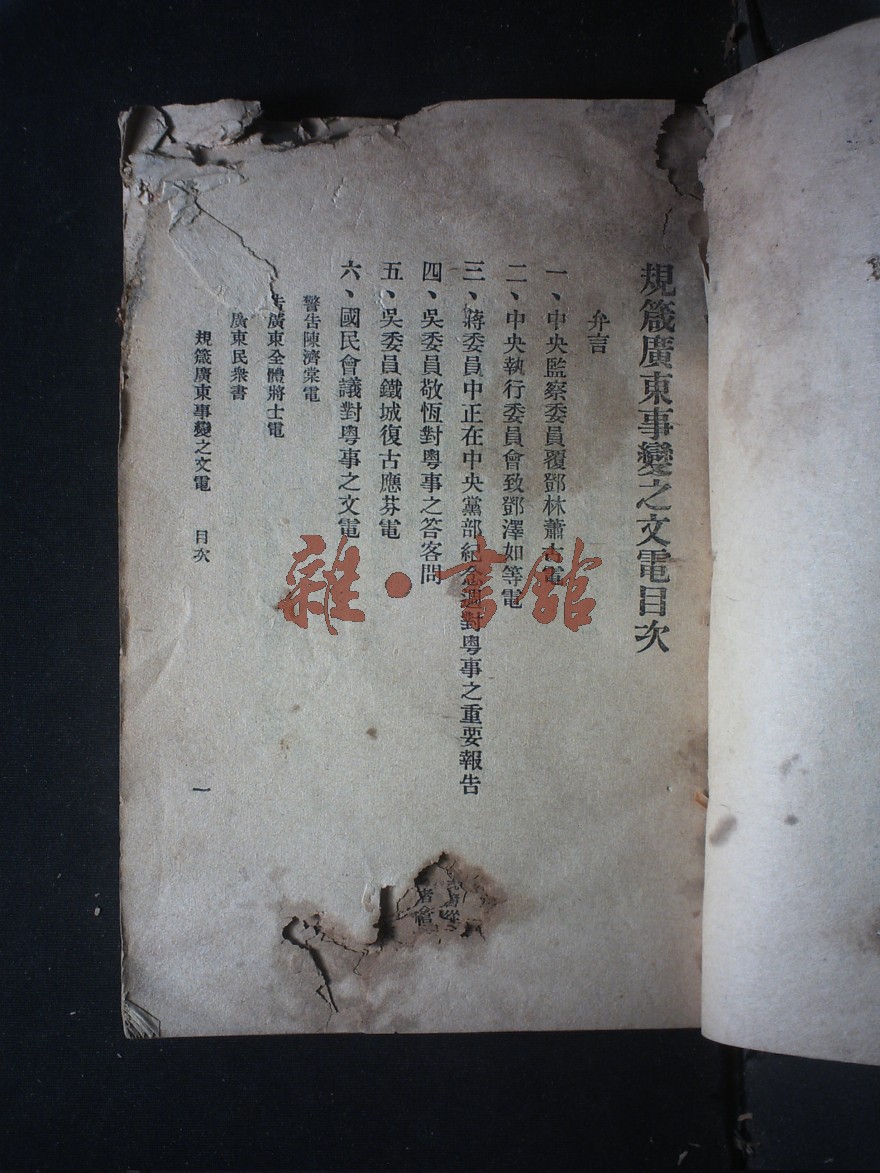 規箴廣東事變之文電目次
弁言
一、中央監察委員覆鄧林蕭古電
二、中央執行委員會致鄧澤如等電
三、蔣委員中正在中央黨部紀念週對粵事之重要報告
四、吳委員敬恆對粵事之答客問
五、吳委員鐵城復古應芬電
六、國民會議對粵事之文電
警告陳濟棠電
告廣東全體將士電
廣東民衆書
規箴廣東事變之文電 目次
一
雜·書館